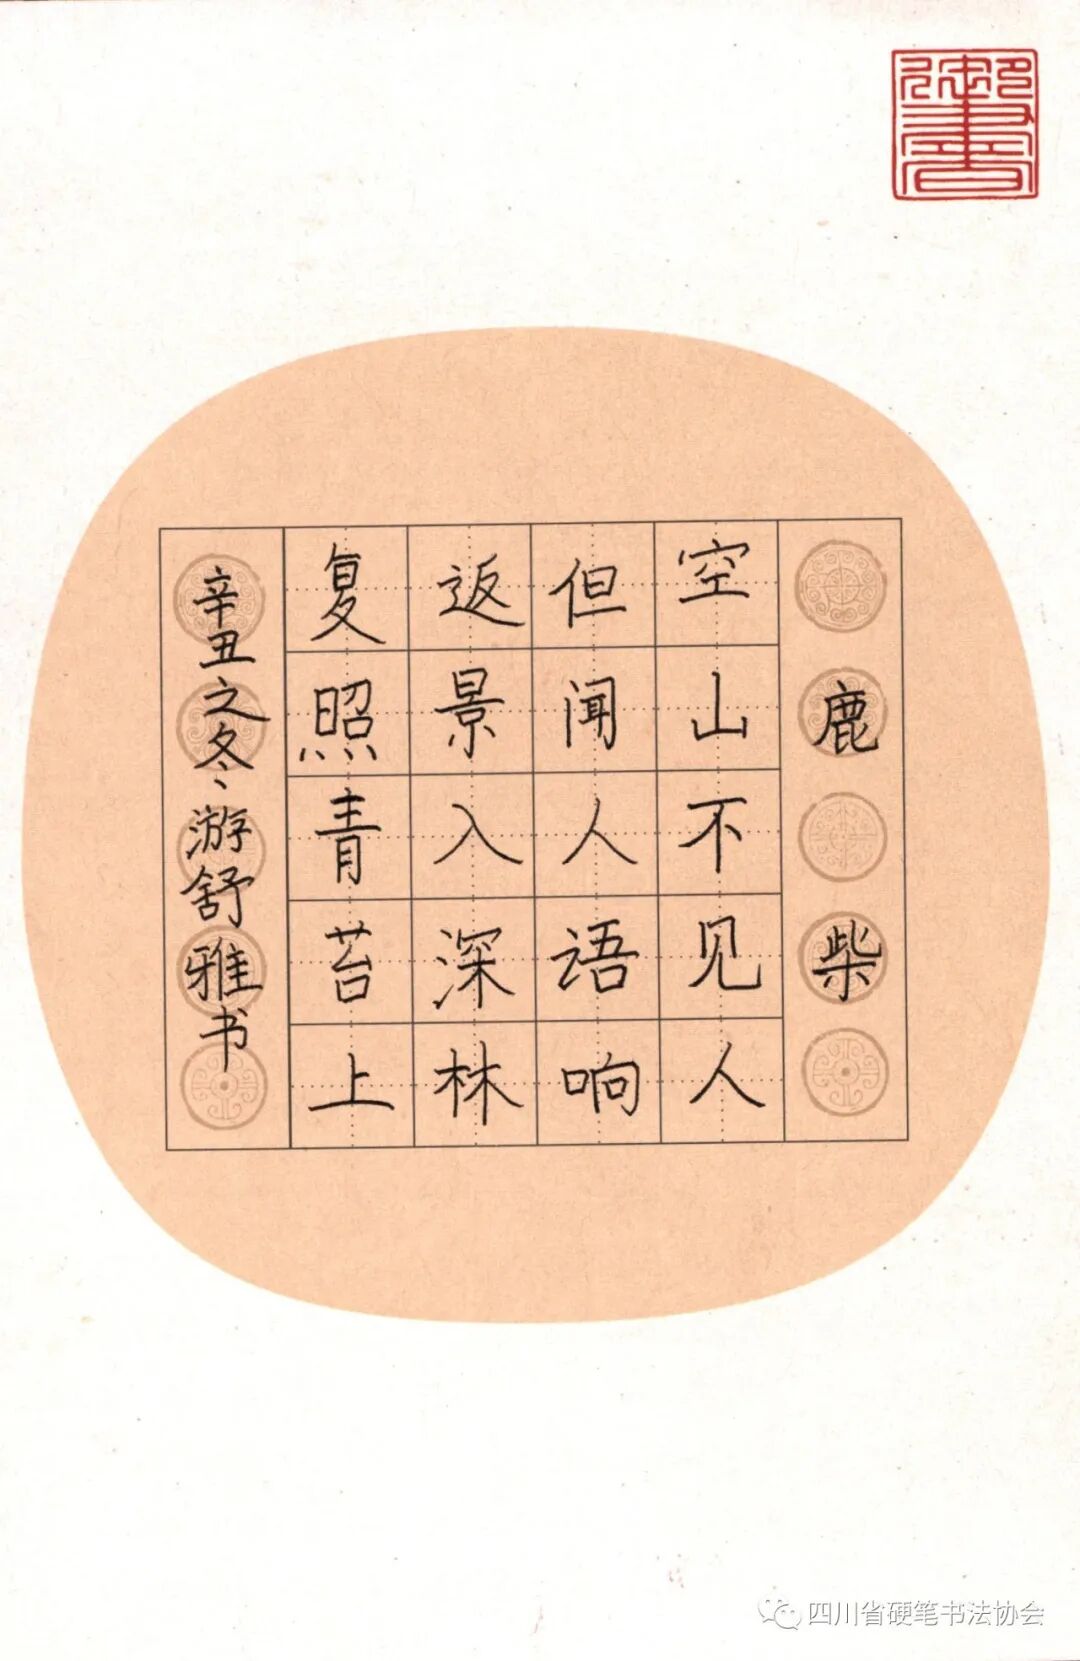 鹿柴
空山不见人
但闻人语响
返景入深林
复照青苔上
辛丑之冬游舒雅书
四川省硬笔书法协会